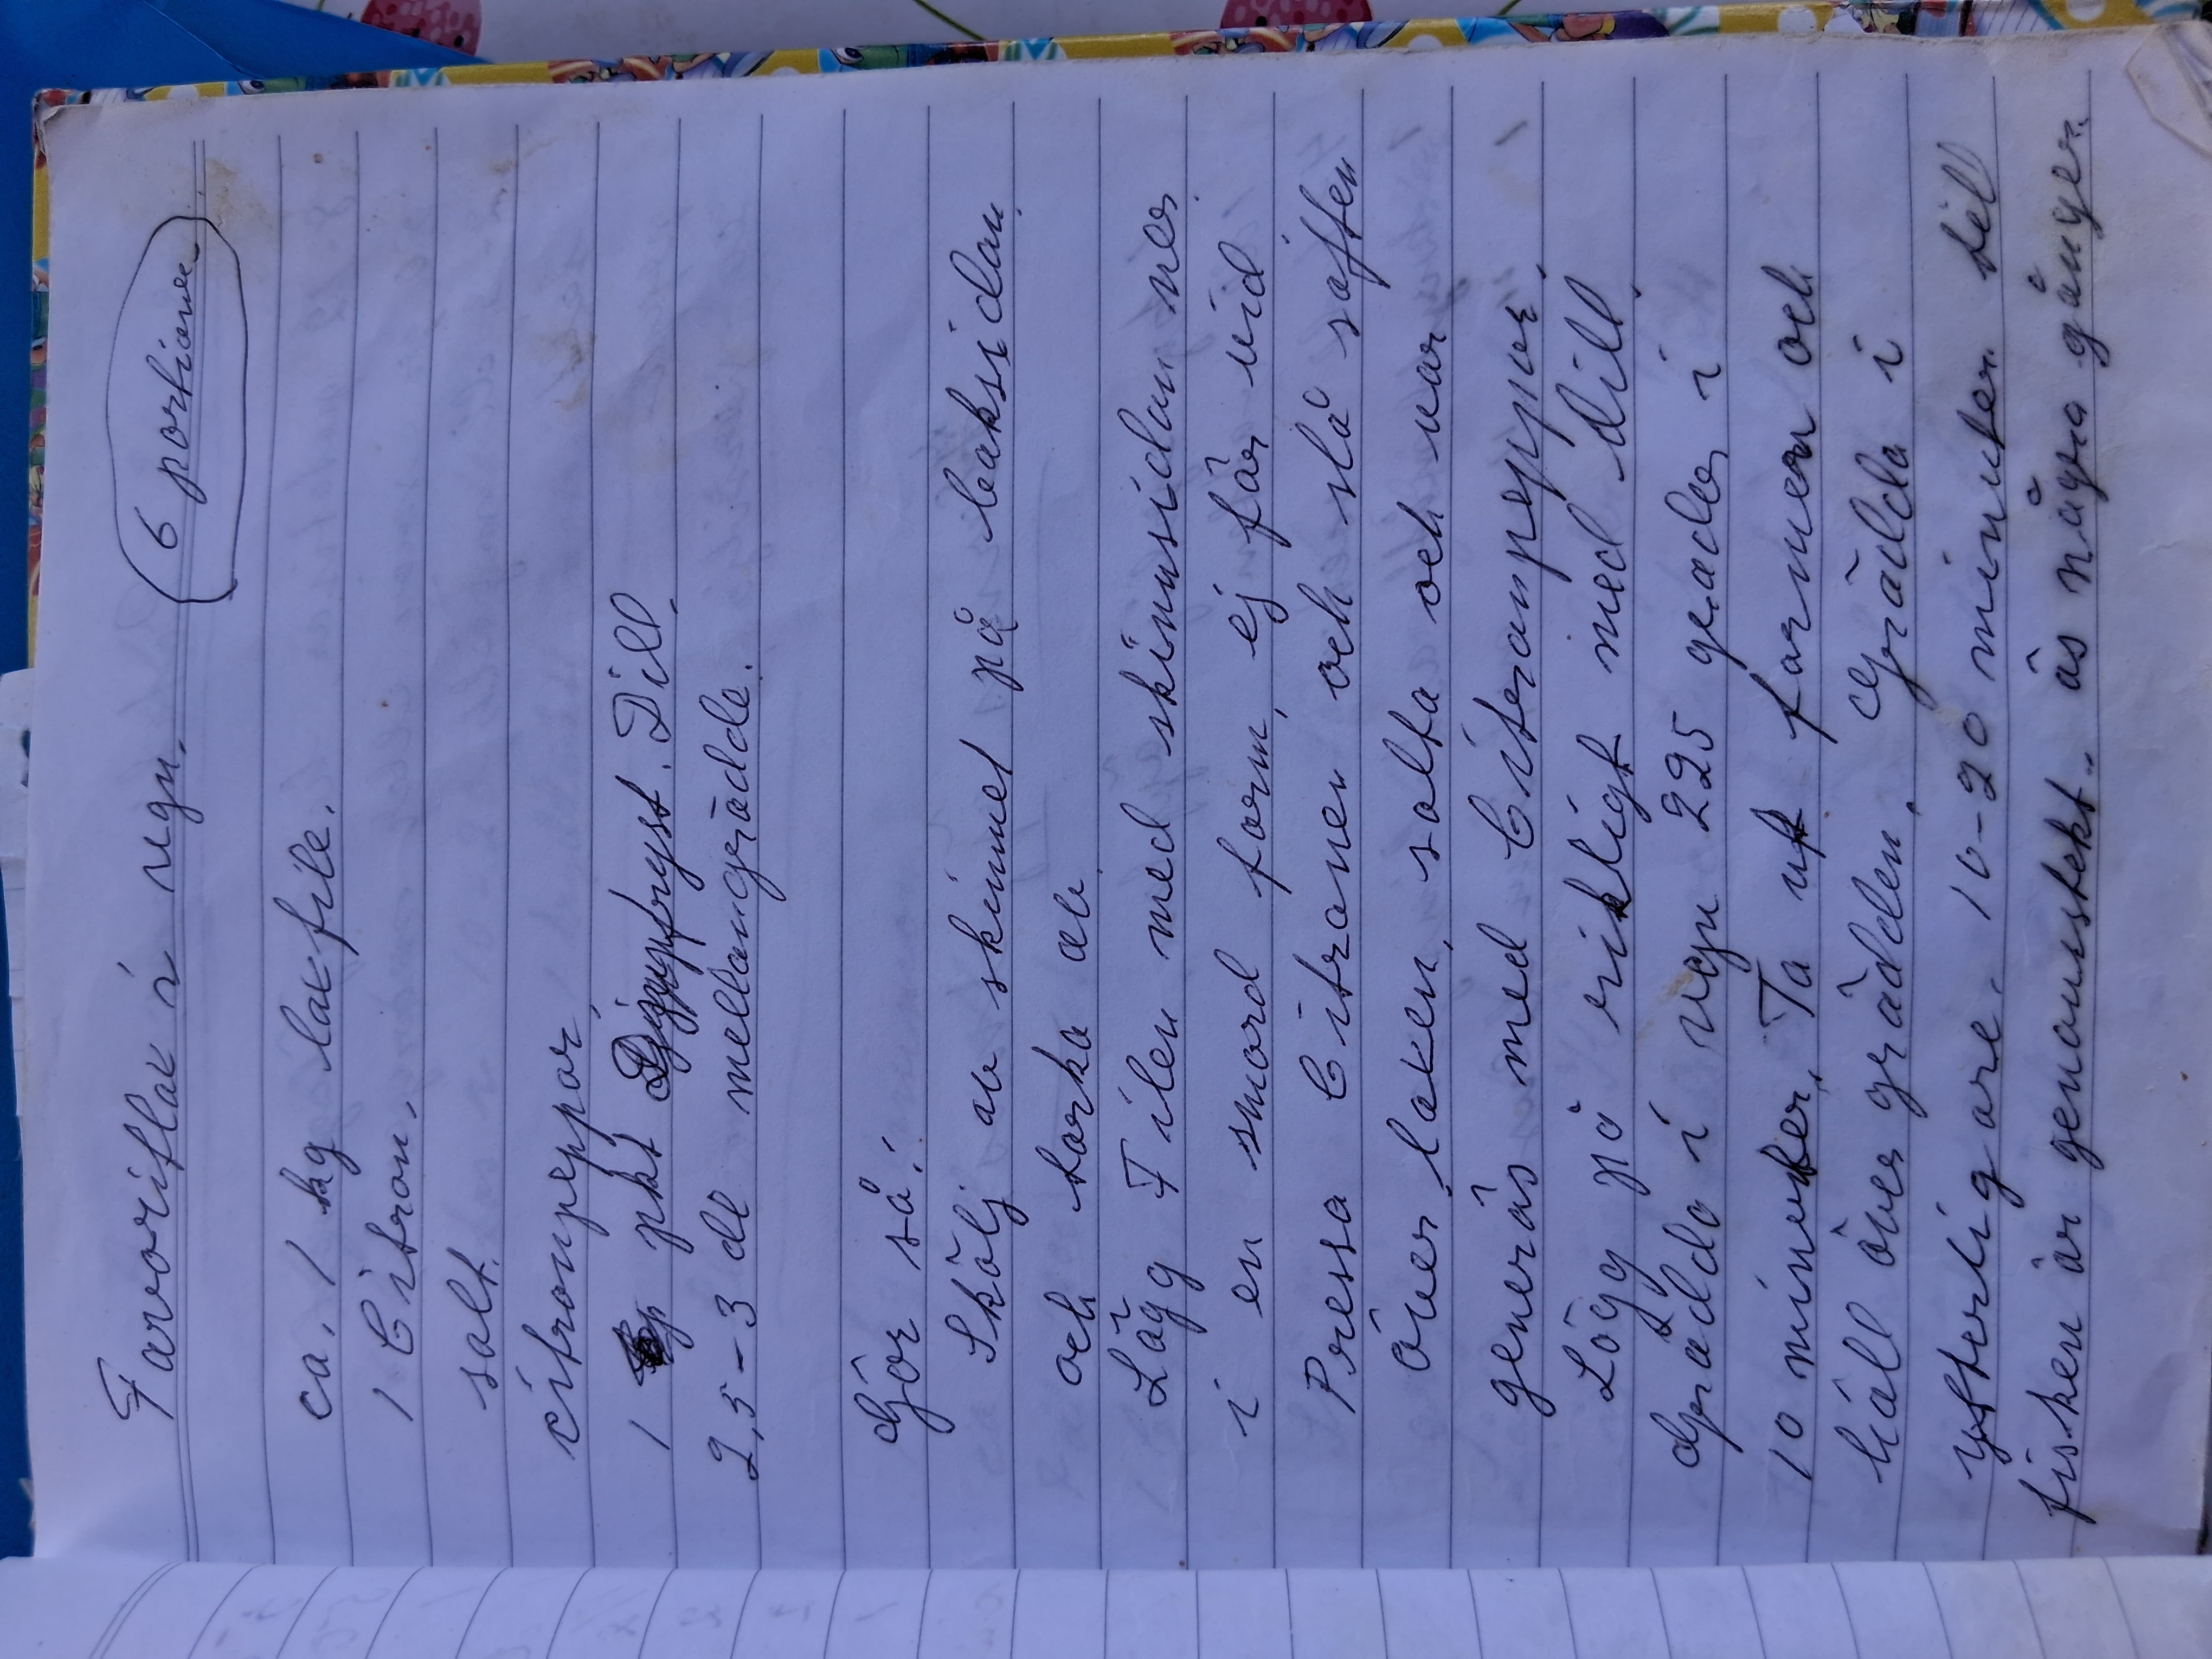 Favoritlax i ugn. (6 portioner)
ca. 1 kg laxfile.
1 Citron.
salt.
citronpeppar.
1 pkt Djupfryst. Dill.
2,5-3 dl mellangrädde.
Gjör så:
Skölj av skinnet på baksidan
och torka av.
Lägg Filen med skinnsidan ner
i en smord form, ej får vid.
Pressa Citronen och slå saften
över laxen, salta och var
generös med Citronpeppar.
Lägg på rikligt med dill.
Grädda i ugn 225 grader i
10 minuter. Ta ut formen och
häll över grädden. Grädda i
ytterligare. 10-20 minuter till
fisken är genomstekt. ös några gånger.